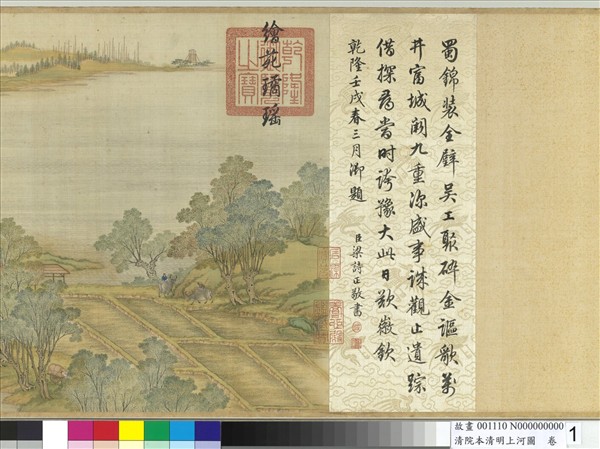 蜀錦裝全璧吳工聚碎金謳歌萬
井富城闕九重深盛事誠觀止遺踪
借探尋當時誇豫大此日歎徽欽
乾隆壬戌春三月御題
臣梁詩正敬書
繪苑璚瑤
乾隆
之寶
故畫 001110 N000000000
清院本清明上河圖 卷
1